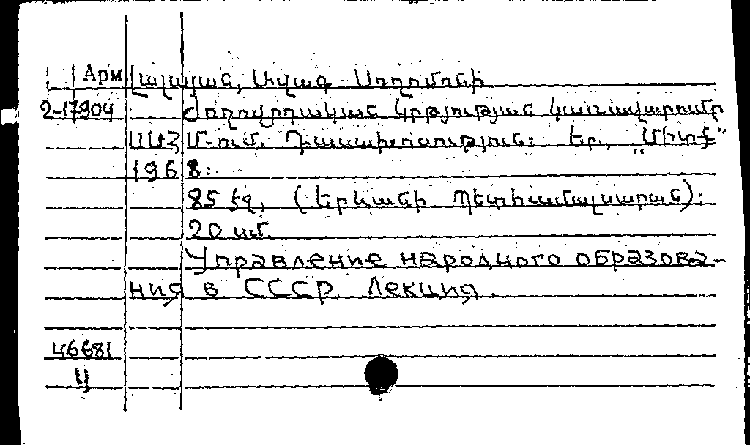 Арм Լալայան, Ավագ Սողոմոնի
2-17904 Ժողովրդական կրթության կառավարումը
ՍՍՀՄ-ում. Դասախոսություն: Եր., "Միտք"
1968:
85 էջ, (Երևանի Պետ. համալսարան):
20 սմ.
Управление народного образова-
ния в СССР. Лекция.
46681